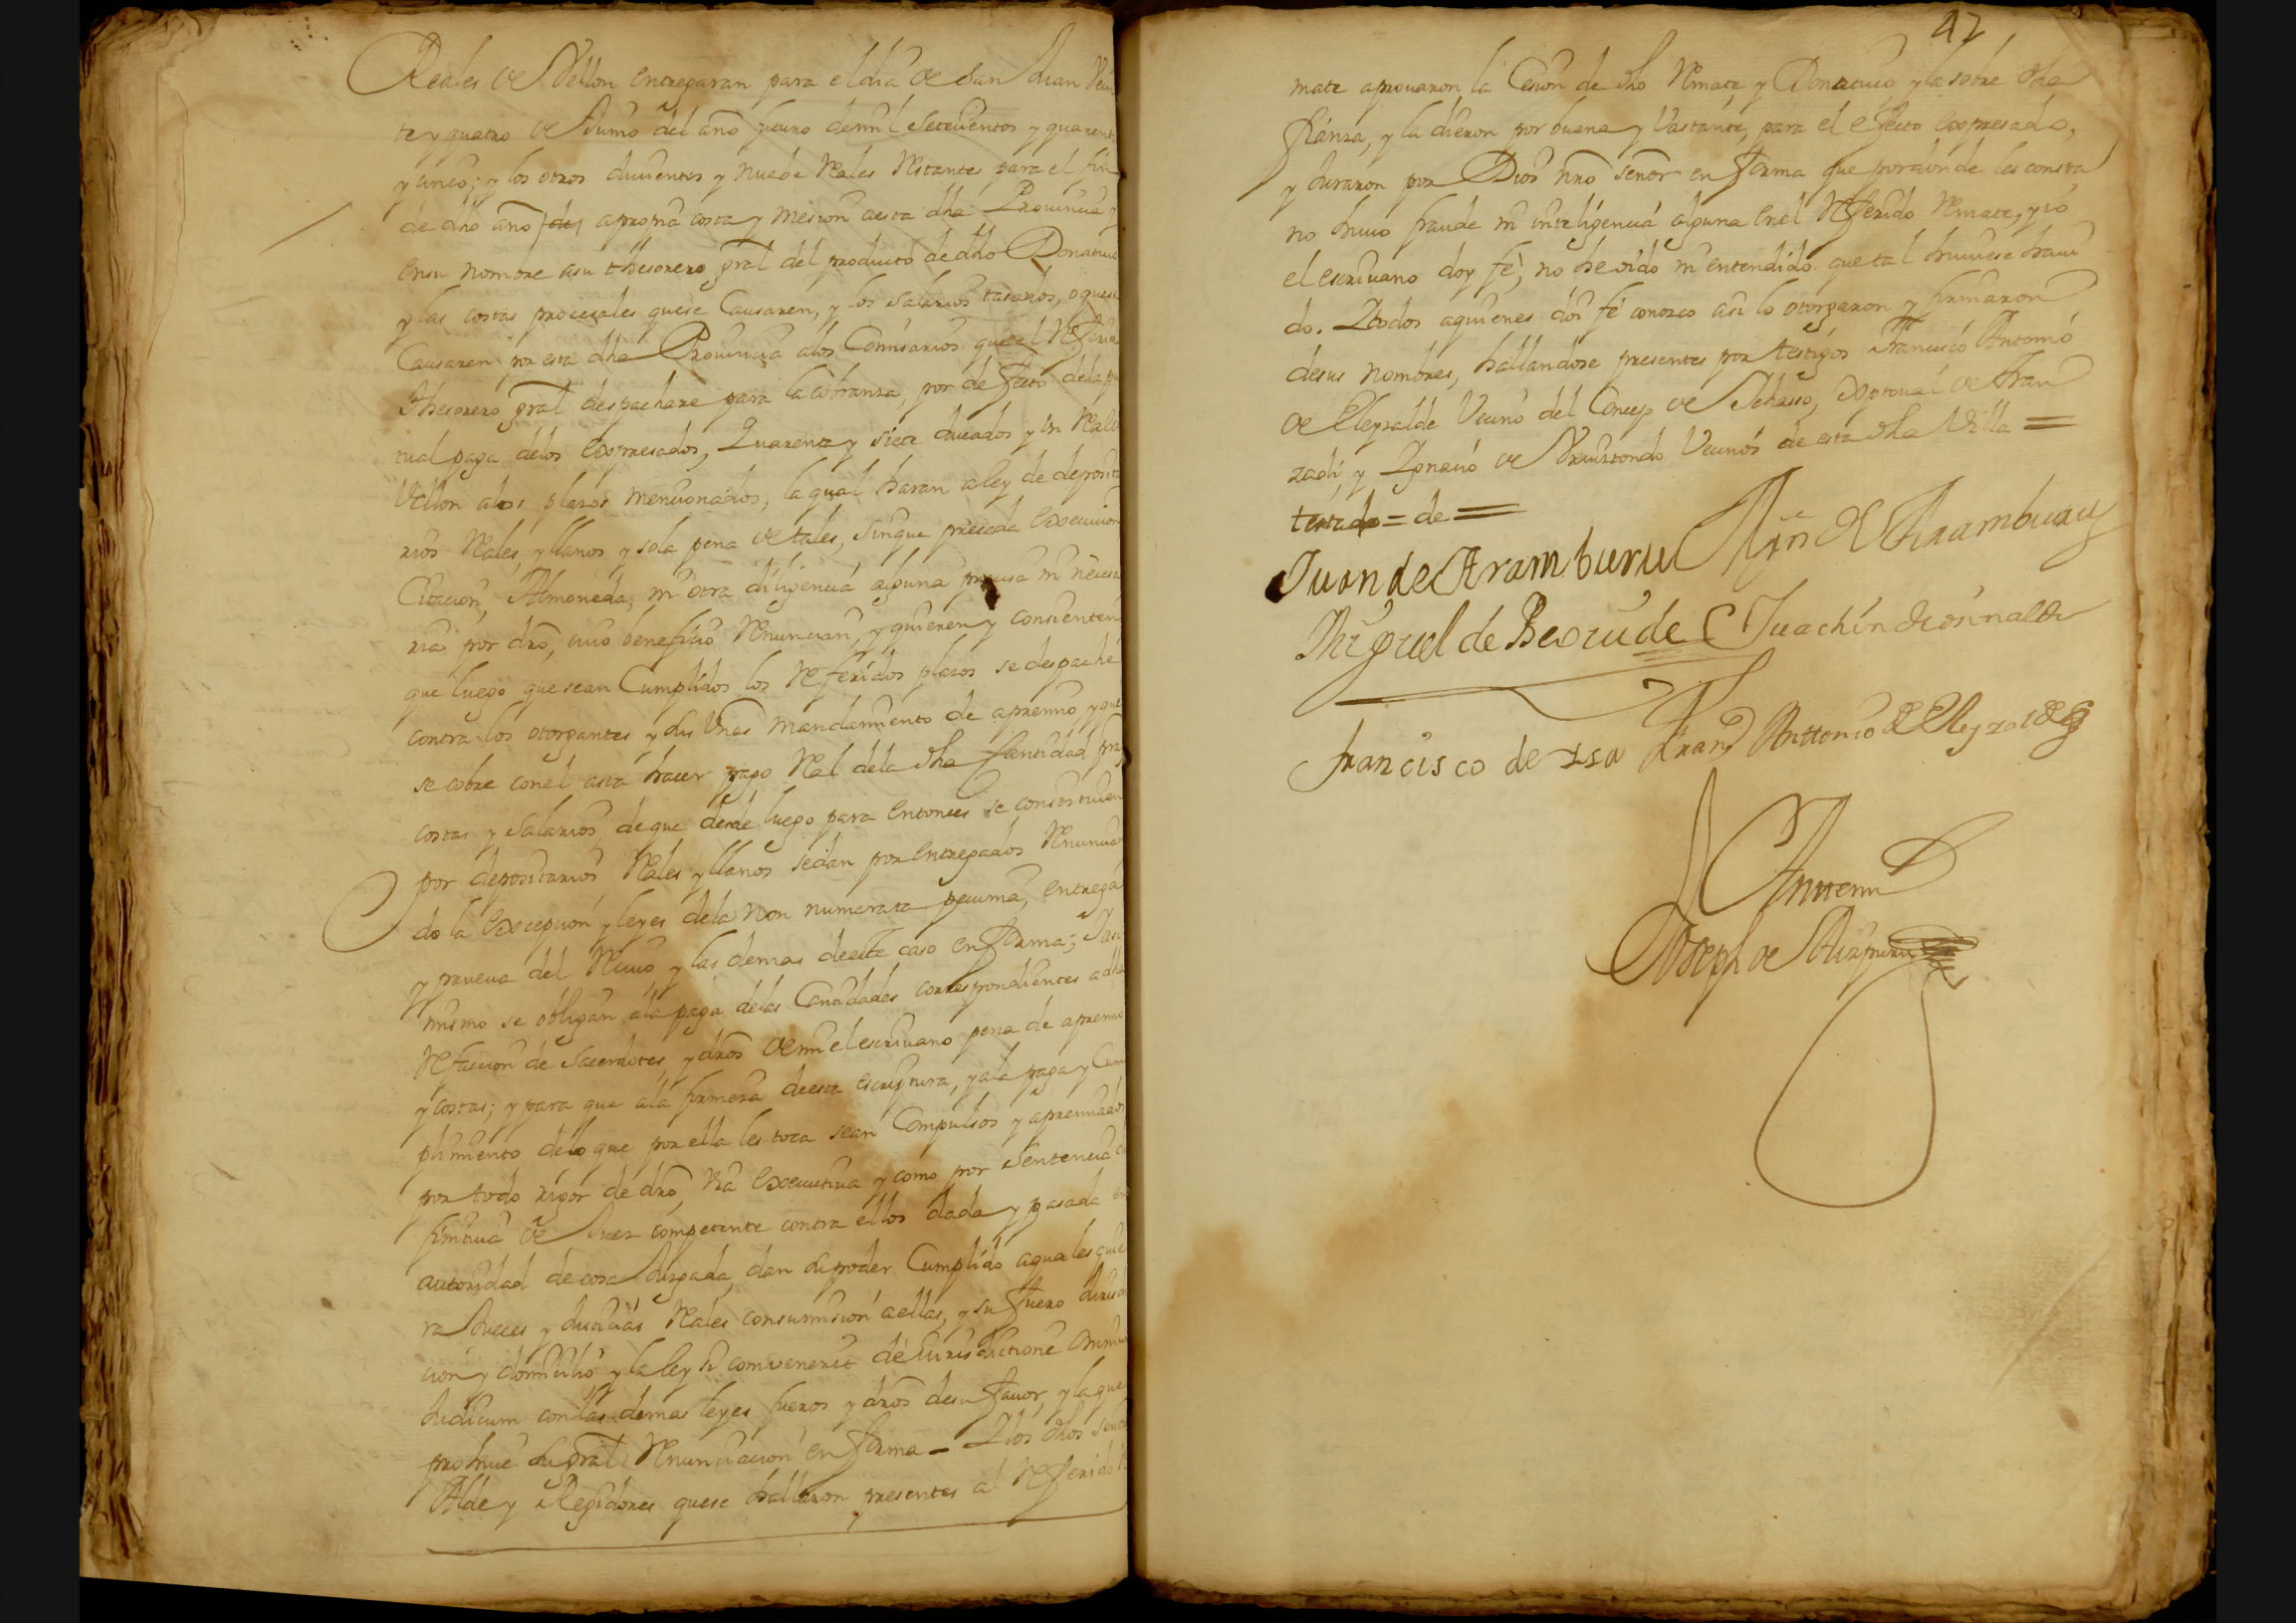 Reales de Vellon entregaran para el dia de San Juan Vein
te y quatro de Junio del año futuro de mil Setecientos y quarenta
y cinco; y los otros ducientos y nuebe Reales restantes para el fin
de dho año apropria costa y mesion aesta dha Provincia y
ensu nombre asu thesorero gral del producto dedho Donativo
y las costas procesales quese Causaren, y los salarios tasados, o quese
Causaren por esta dha Provincia alos Comisarios que el Referido
Thesorero gral despachare para la cobranza, por defecto dela pun
tual paga delos expresados, Quarenta y siete ducados y un Real de
Vellon alos plazos mencionados, la qual haran aley de deposita
rios Reales, y llanos y sola pena de tales, sinque preceda execucion
Citacion, Almoneda, ni otra diligencia alguna precisa ni necesa
ria por dro, cuio beneficio Renuncian, y quieren y consienten
que luego que sean Cumplidos los referidos plazos se despache
contra los otorgantes y sus Vienes mandamiento de apremio y que
se cobre conel asta hacer pago Real dela dha Cantidad pral
costas y Salarios, deque desde luego para entonces se constituien
por depositarios Reales y llanos sedan por entregados Renuncian
do la excepcion y leyes dela non numerata pecunia, entrega
y prueva del Recivo, y las demas deeste caso en forma; Y asi
mismo se obligan ala paga delas Cantidades correspondientes adha
Refaccion de Sacerdotes, y dros de mi el escrivano pena de apremio
y costas; y para que ala firmeza deesta escriptura, y ala paga y Cum
plimiento delo que por ella les toca sean Compulsos y apremiados
por todo rigor de dro, via executiva y como por sentencia de
finitiva de Juez competente contra ellos dada y pasada en
autoridad de cosa Juzgada, dan su poder Cumplido aqualesquie
ra Jueces y Justicias Reales consumision aellas, y su fuero Jurisdi
cion y domicilio y la ley si convenerit de iurisdictione Omnium
Judicum con las demas leyes fueros y dros desu favor, y la que
prohive la gral Renunciacion en forma = Y los dhos señores
Alde y Regidores quese hallaron presentes al Referido Re
42
mate aprovaron la Cesion de dho Remate y Donativo y la sobre dha
fianza, y la dieron por buena y Vastante, para el efecto expresado,
y Juraron por Dios nro señor en forma que pordonde les consta
no huvo fraude ni inteligencia alguna enel Referido Remate, y io
el escrivano doy fe, no he oido ni entendido que tal huviese havi
do. Y todos aquienes doi fe conozco asi lo otorgaron y firmaron
desus nombres, hallandose presentes por testigos Francisco Antonio
de Eleyzalde Vecino del Concejo de Xptoval de Aran
zadi, y Ygnacio de Vecinos de esta dha Villa =
testado = de =
Juan de Aramburu Mn de Aramburu
Miguel de Joachin de
Francisco de Isa Frano Anttonio de Eleyzalde
Antemi
Joseph de Aizpuru